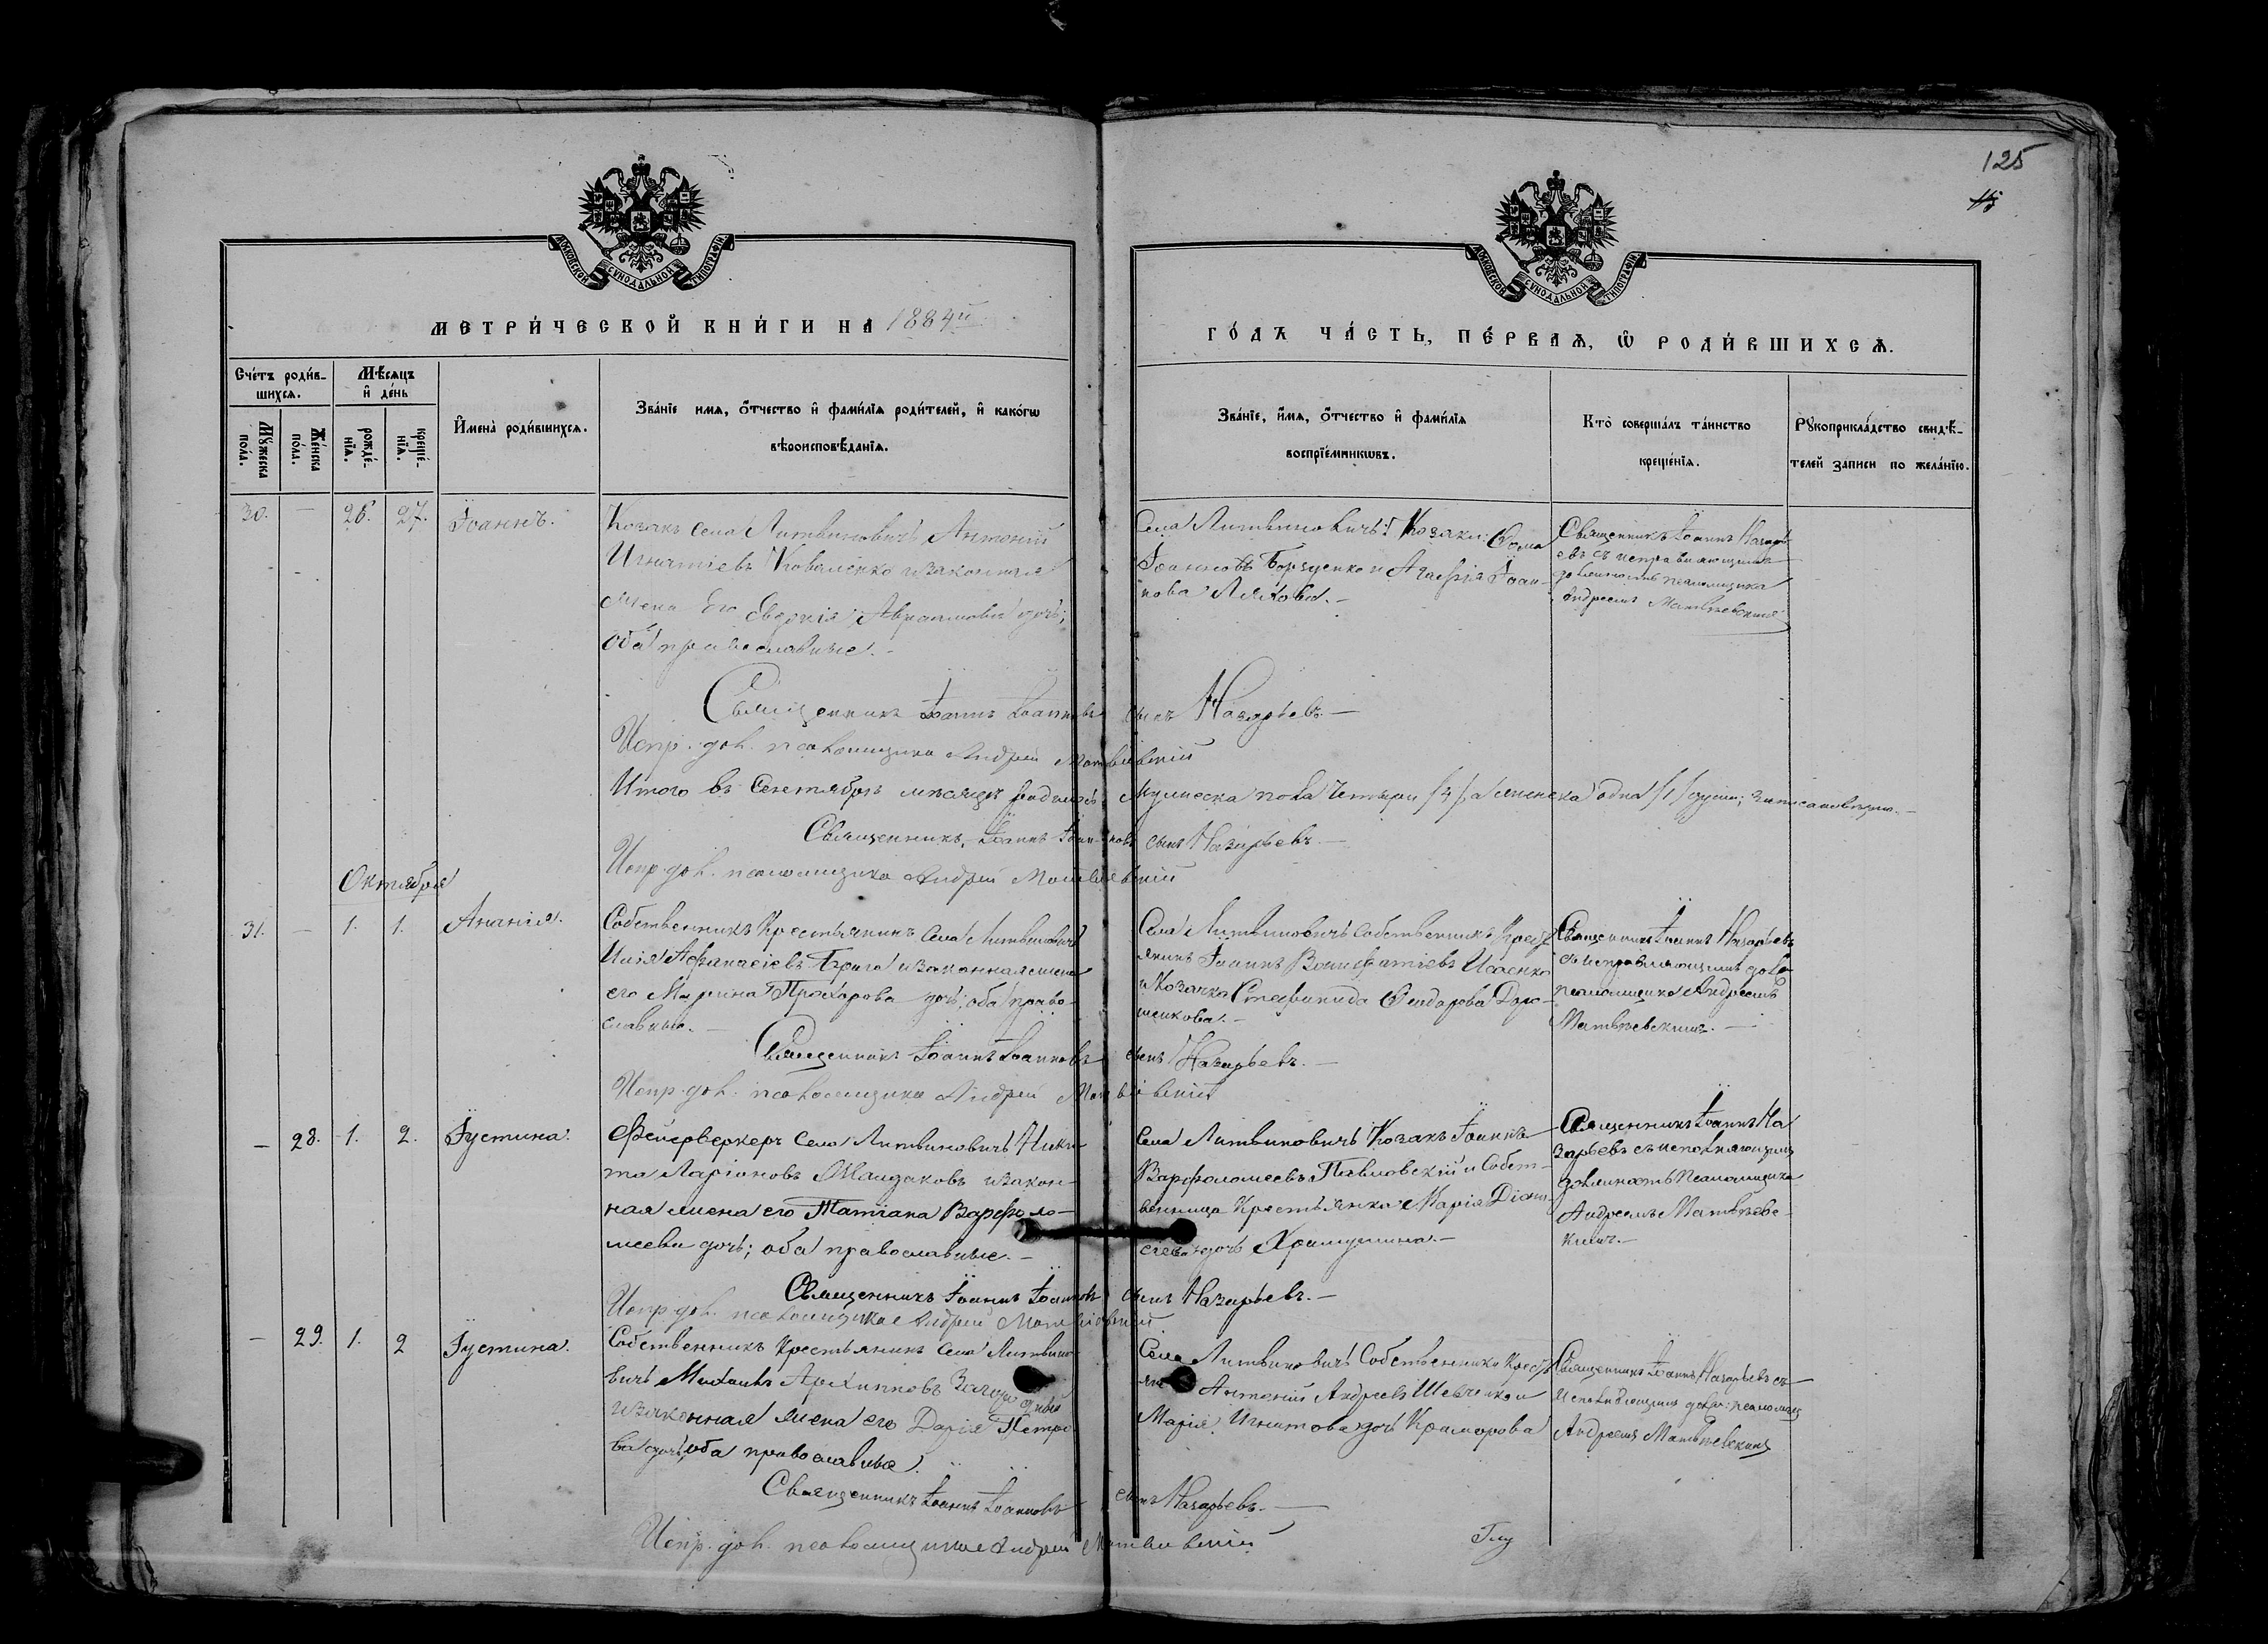 125
МОСКОВСКОЙ СУНОДАЛЬНОЙ ТИПОГРАФІИ
МОСКОВСКОЙ СУНОДАЛЬНОЙ ТИПОГРАФІИ
МЕТРИ́ЧЕСКОЙ КНИ́ГИ НА 1884й
ГО́ДЪ ЧА́СТЬ, ПЕ́РВАѦ, Ѡ҆ РОДИ́ВШИХСѦ.
Сче́тъ роди́в-
шихсѧ.
Мѣ́сяцъ
и҆ де́нь
Мꙋ́жеска пола̀.
Же́нска по́ла.
рожде́-нїѧ.
креще́-нїѧ.
И҆мена̀ роди́вшихсѧ.
Зва́нїе имѧ, ѻ҆́тчество и҆ фами́лїѧ роди́телей, и҆ како́гѡ
вѣроисповѣ́данїѧ.
Зва́нїе, и҆́мѧ, ѻ҆́тчество и҆ фами́лїѧ
воспрїе́мникѡвъ.
Кто̀ соверша́лъ та́инство
креще́нїѧ.
Рꙋкоприкла́дство свидѣ́-
телей записи по жела́нїю.
30. — 26. 27. Іоаннъ.
Козакъ села Литвиновичъ Антоній
Игнатіевъ Коваленко и законная
жена его Евдокія Авраамова дочь;
оба православные.
Села Литвиновичъ: Козаки: Ѳома
Іоанновъ Борзденко и Агафія Іоан-
нова Ляхова. —
Священникъ Іоаннъ Назарь-
евъ съ исправляющимъ
должность псаломщика
Андреемъ Матвѣевскимъ
Священникъ Іоаннъ Іоанновъ сынъ Назарьевъ. —
Испр. дол. псаломщика Андрей Матвіевскій
Итого въ Сентябрѣ мѣсяцѣ родилось мужеска пола четыри /4/, а женска одна /1/ душа;
Священникъ, Іоаннъ Іоанновъ сынъ Назарьевъ. —
Испр. дол. псаломщика Андрей Матвіевскій
Октября
31. — 1. 1. Ананія.
Собственникъ Крестьянинъ села Литвиновичъ
Илія Аѳанасіевъ и законная жена
его Марина Прохорова дочь; оба право-
славные. —
Села Литвиновичъ собственникъ Кресть-
янинъ Іоаннъ Вонифатіевъ Исаенко
и Козачка Стефанида Ѳеодорова Доро-
шенкова. —
Священникъ Іоаннъ Назарьевъ
съ исправляющимъ дол.
псаломщика Андреемъ
Матвѣевскимъ. —
Священникъ Іоаннъ Іоанновъ сынъ Назарьевъ. —
Испр. дол. псаломщика Андрей Матвіевскій
— 28. 1. 2. Іустина.
Фейерверкеръ села Литвиновичъ Ники-
та Ларіоновъ Майдаковъ и закон-
ная жена его Татіана Варфоло-
меева дочь; оба православные. —
Села Литвиновичъ Козакъ Іоаннъ
Варфоломеевъ Павловскій и Собст-
венница Крестьянка Марія Діони-
сіева дочь
Священникъ Іоаннъ На
зарьевъ съ исполняющимъ
должность Псаломщика
Андреемъ Матвѣевс-
кимъ. —
Священникъ Іоаннъ Іоанновъ сынъ Назарьевъ. —
Испр. дол. псаломщика Андрей Матвіевскій
— 29. 1. 2 Іустина.
Собственникъ Крестьянинъ села Литвино-
вичъ Михаилъ Архипповъ
и законная жена его Дарія Петро-
ва дочь, оба православные.
Села Литвиновичъ Собственники Кресть-
яне Антоній Андреевъ Шевченко и
Марія Игнатова дочь
Священникъ Іоаннъ Назарьевъ съ
исполняющимъ должн. псаломщ
Андреемъ Матвѣевскимъ
Священникъ Іоаннъ Іоанновъ сынъ Назарьевъ. —
Испр. дол. псаломщика Андрей Матвіевскій